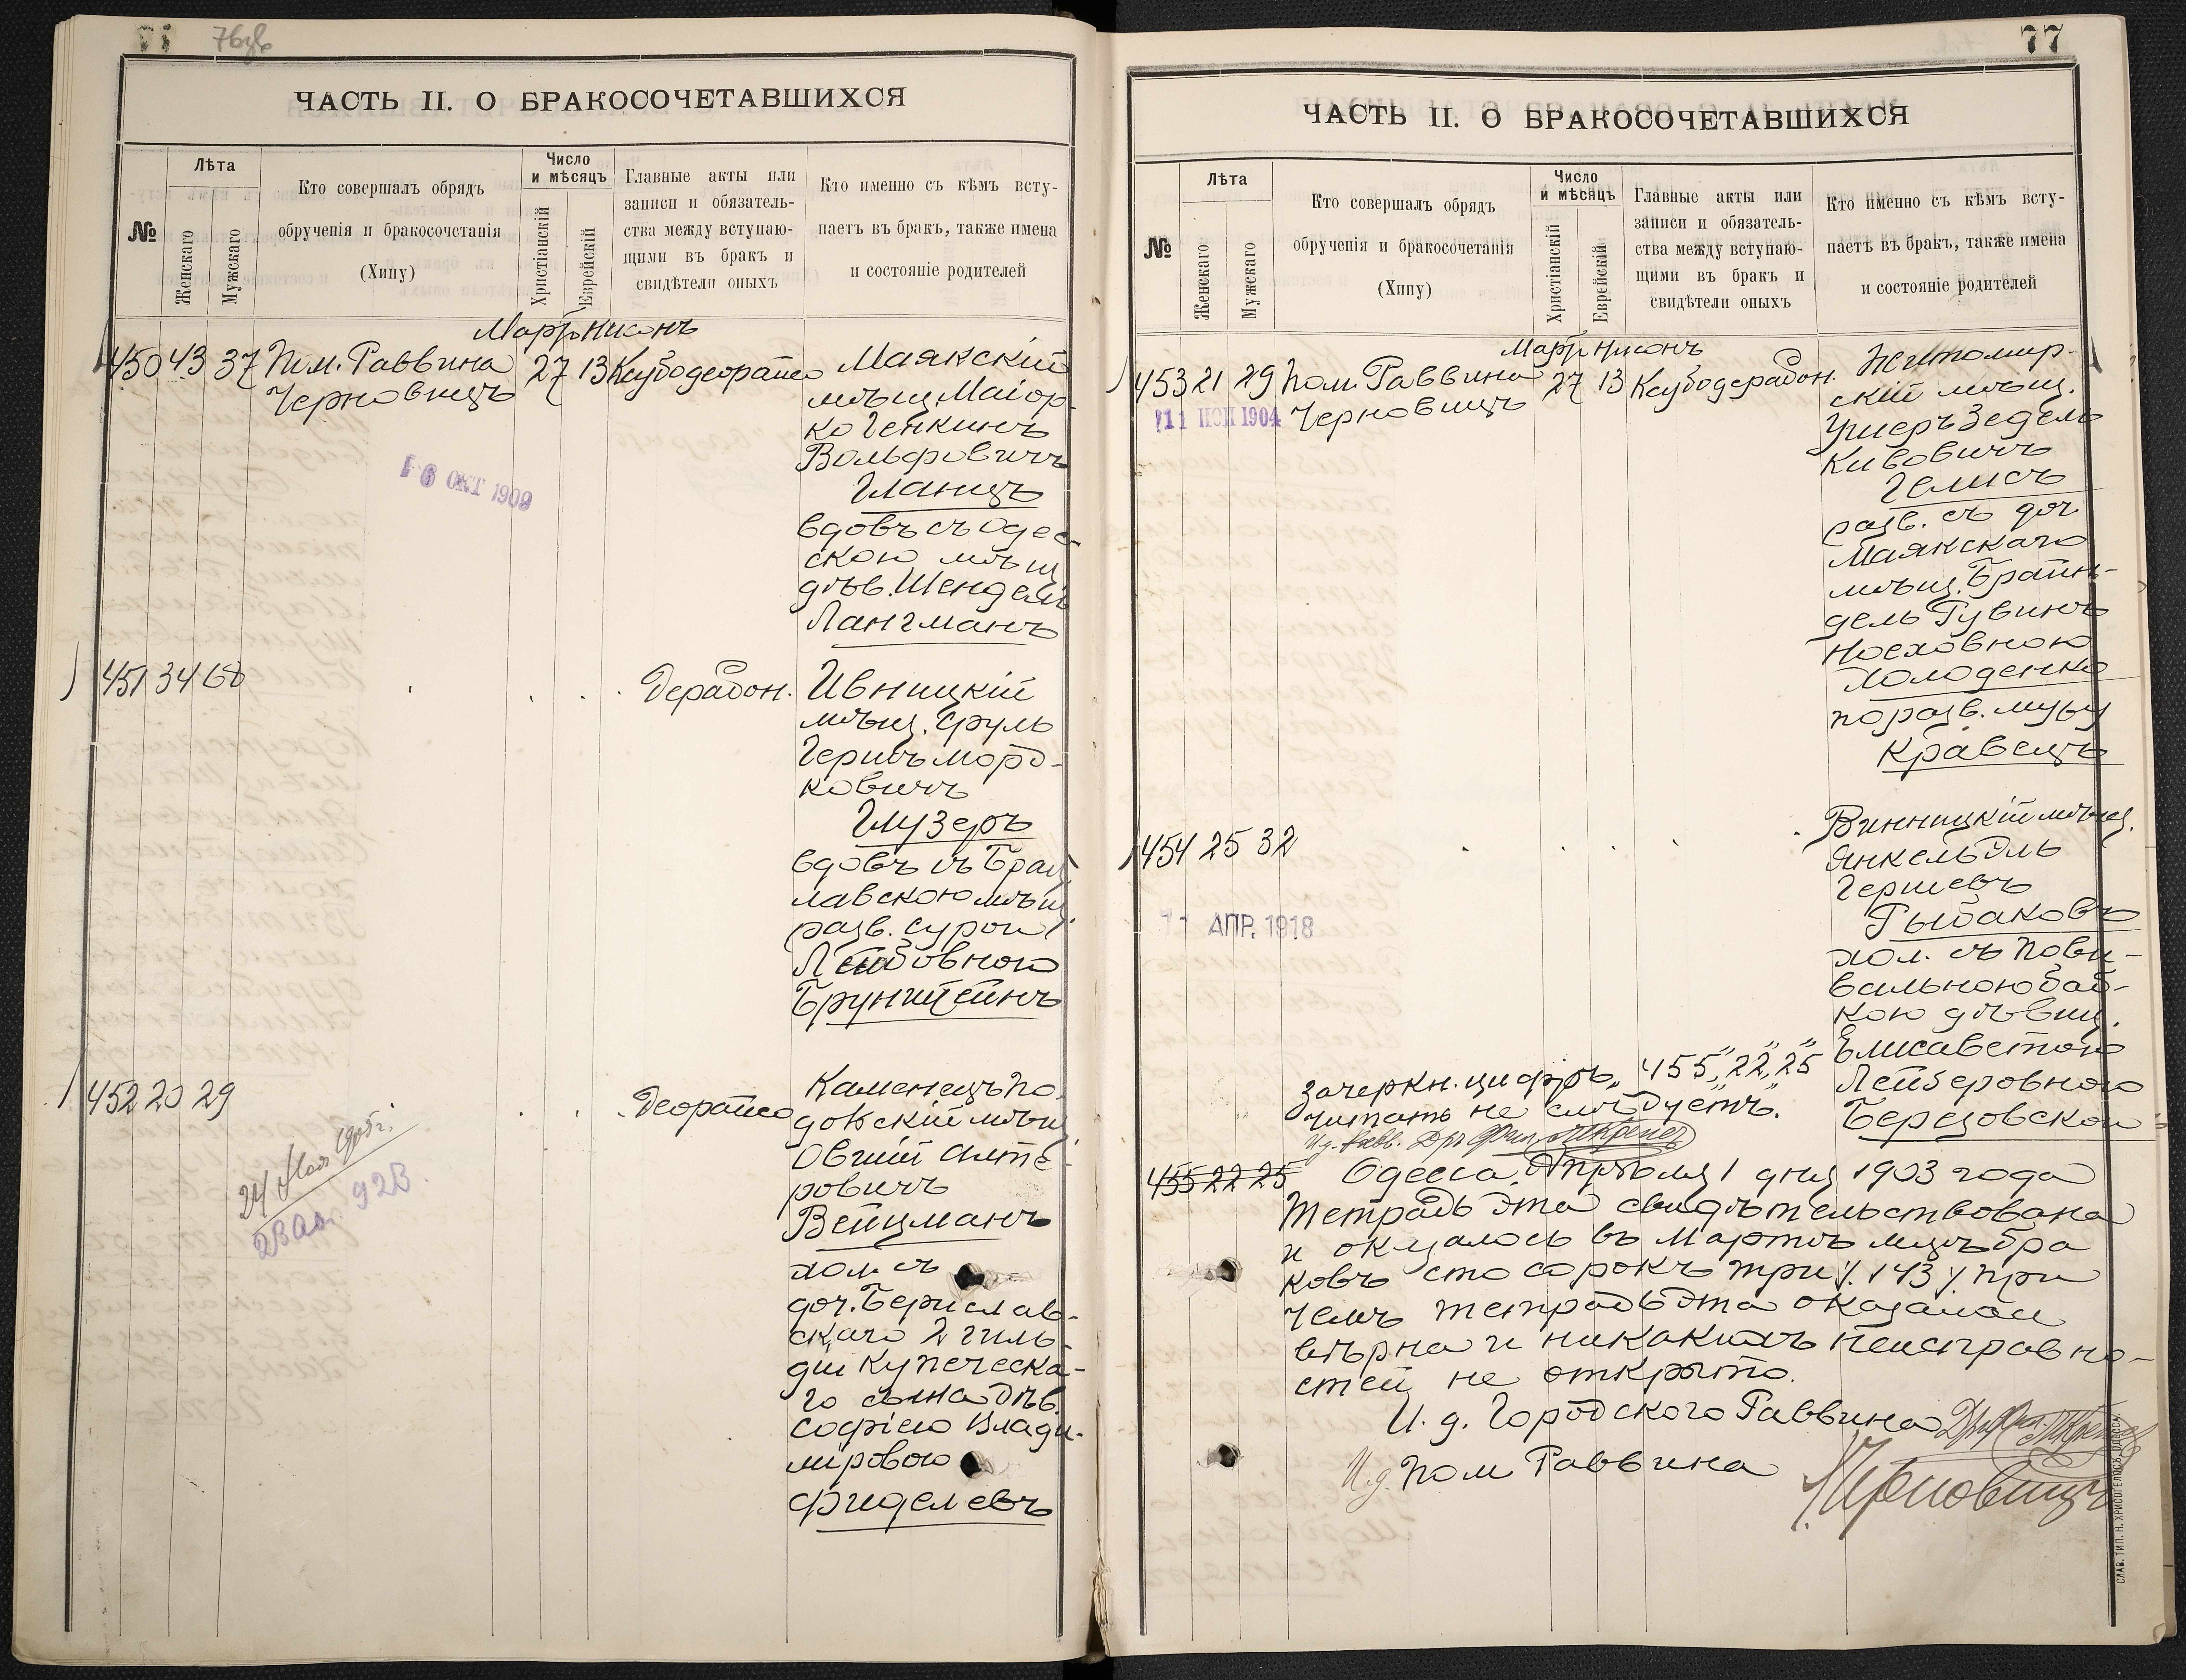 76об
ЧАСТЬ II. О БРАКОСОЧЕТАВШИХСЯ
№
Лѣта
Женскаго
Мужскаго
Кто совершалъ обрядъ
обрученія и бракосочетанія
(Хипу)
Число
и мѣсяцъ
Христіанскій
Еврейскій
Главные акты или
записи и обязатель-
ства между вступаю-
щими въ бракъ и
свидѣтели оныхъ
Кто именно съ кѣмъ всту-
паетъ въ бракъ, также имена
и состояніе родителей
Мартъ Нисонъ
450 43 37 Пом. Раввина 27 13
Черновицъ
Маякскій
мѣщ. Маіор-
ко Генкинъ
Вольфовичъ
Гланцъ
вдовъ съ Одес-
скою мѣщ
дѣв. Шендель
Лангманъ
16 ОКТ 1909
451 34 68
Дерабон. Ивницкій
мѣщ. Сруль
Гершъ Морд-
ковичъ
Глузеръ
вдовъ съ Брац
лавскою мѣщ.
разв. Сурой
Лейбовною
Брунштейнъ
452 20 29
Деорайсо
Каменецъ По-
дольскій мѣщ
Овшій Алте-
ровичъ
Вейцманъ
хол. съ
доч. Берислав-
скаго 2 гиль-
діи купеческа-
го сына дѣв.
Софіею Влади-
міровою
Фиделевъ
24 Мая 1905 г.
923.
77
ЧАСТЬ II. О БРАКОСОЧЕТАВШИХСЯ
№
Лѣта
Женскаго
Мужскаго
Кто совершалъ обрядъ
обрученія и бракосочетанія
(Хипу)
Число
и мѣсяцъ
Христіанскій
Еврейскій
Главные акты или
записи и обязатель-
ства между вступаю-
щими въ бракъ и
свидѣтели оныхъ
Кто именно съ кѣмъ всту-
паетъ въ бракъ, также имена
и состояніе родителей
Мартъ Нисонъ
453 21 29 Пом. Раввина 27 13
Черновицъ
Житомир-
скій мѣщ.
Ушеръ Зедель
Кивовичъ
Гелисъ
разв. съ доч
Маякскаго
мѣщ. Брайн-
дель Рувинъ
Носховною
Холоденко
по разв. мужу
Кравецъ
454 25 32
Винницкій мѣщ.
Янкель Эль
Гершевъ
Рыбаковъ
хол. съ Пови-
вальною баб-
кою дѣвиц.
Елисаветою
Лейзеровною
Березовской
11 АПР. 1918
Зачеркн. цифръ „455„ „22„ „25
читать не слѣдуетъ.
455 22 25
Одесса, Апрѣля 1 дня 1903 года
Тетрадь эта свидѣтельствована
и оказалось въ Мартѣ мцѣ бра
ковъ сто сорокъ три /. 143 /. при
чемъ тетрадь эта оказалась
вѣрна и никакихъ неисправно-
стей не открыто.
И. д. Городского Раввина
И. д. Пом Раввина
Черновицъ
СЛАВ. ТИП. Н. ХРИСОГЕЛОСЪ, ОДЕССА